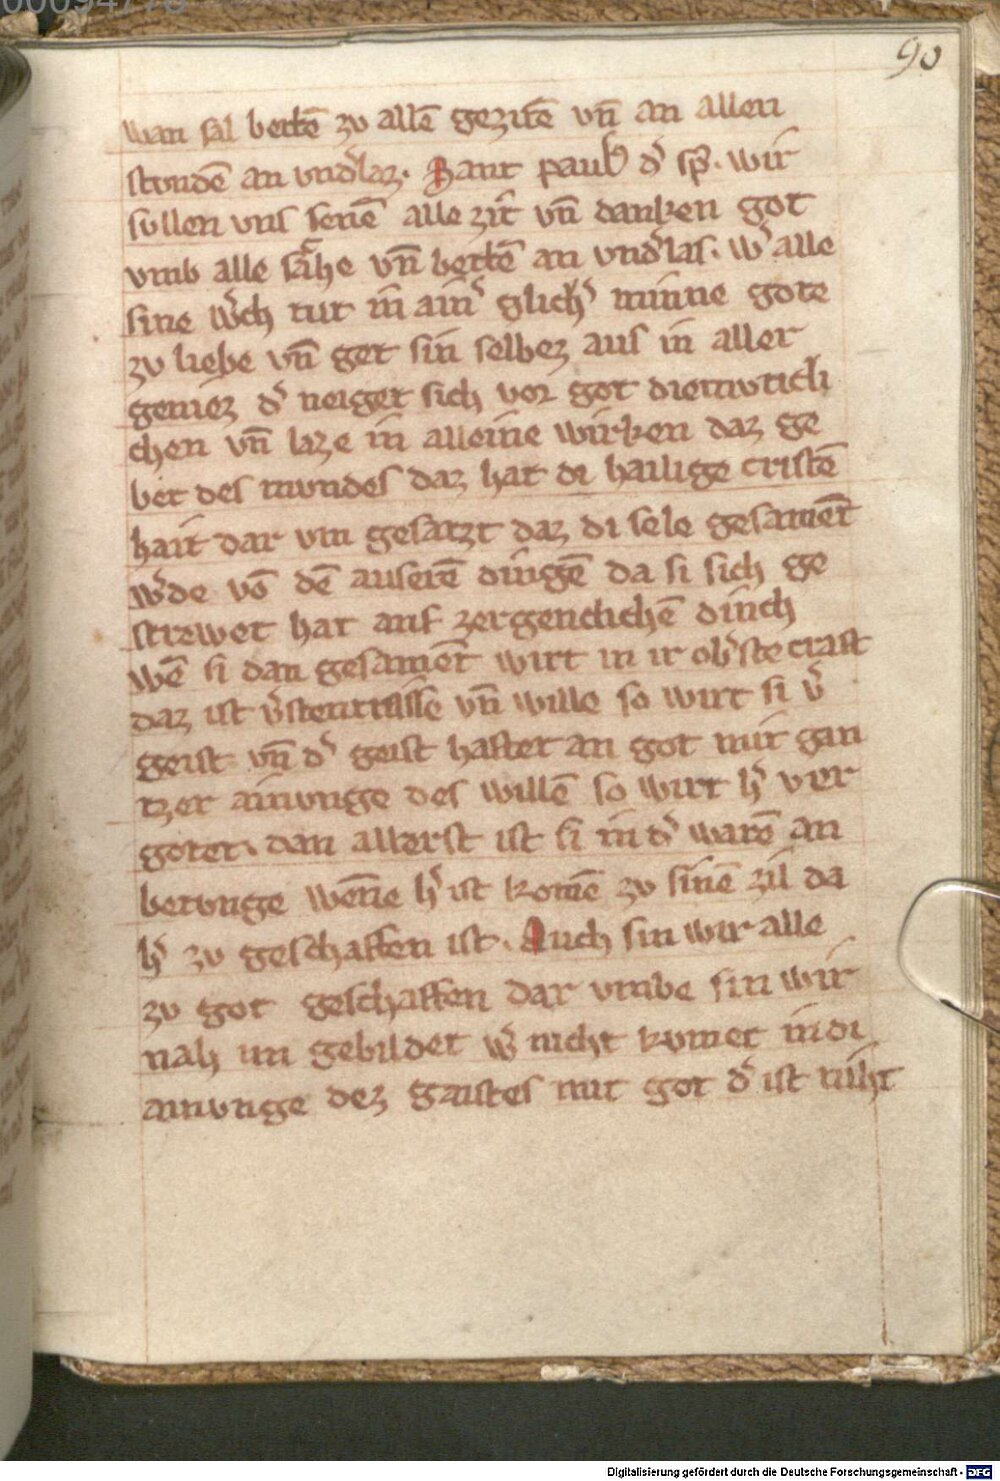 90
wan sal bettē zv allē gezitē vn̄ an allen
stvndē an vnd͛laz. Sant paul9 d͛ sp̄. wir
sullen vns senē alle zit vn̄ danken got
vmb alle sache vn̄ bettē an vnd͛las. w͛ alle
sine w͛ch tut in ain͛ glich͛ minne gote
zv liebe vn̄ get sin selbez aus in aller
geniez d͛ neiget sich vor got diemvtich
chen vn̄ laze in alleine wirken daz ge
bet des mvndes daz hat di hailige cristē
hait dar vm gesatzt daz di sele gesamēt
w͛de vō dē auserē dingē da si sich ge
strewet hat auf zergenclichē dinch
wē si dan gesamēt wirt in ir ob͛ste craft
daz ist v͛stentnisse vn̄ wille so wirt si v͛
geist vn̄ d͛ geist haftet an got mit gan
tzer ainvnge des willē so wirt h͛ ver
gotet. dan allerst ist si in d͛ warē an
betvnge wēne h͛ ist komē zv sinē zil da
h͛ zv geschaffen ist. Auch sin wir alle
zv got geschaffen dar vmbe sin wir
nah im gebildet w͛ nicht kvmet in di
ainvnge dez gaistes mit got d͛ ist niht
Digitalisierung gefördert durch die Deutsche Forschungsgemeinschaft - DFG